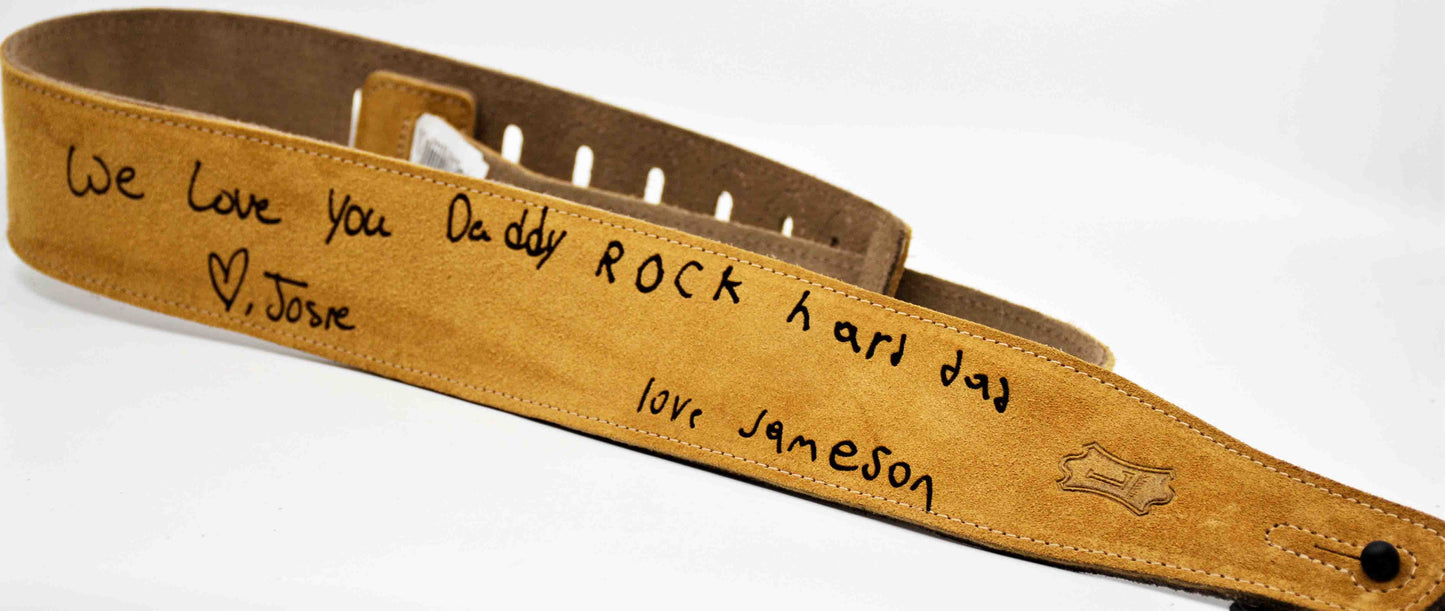 We Love You Daddy
♡, Josie
ROCK hard dad
love Jameson
L